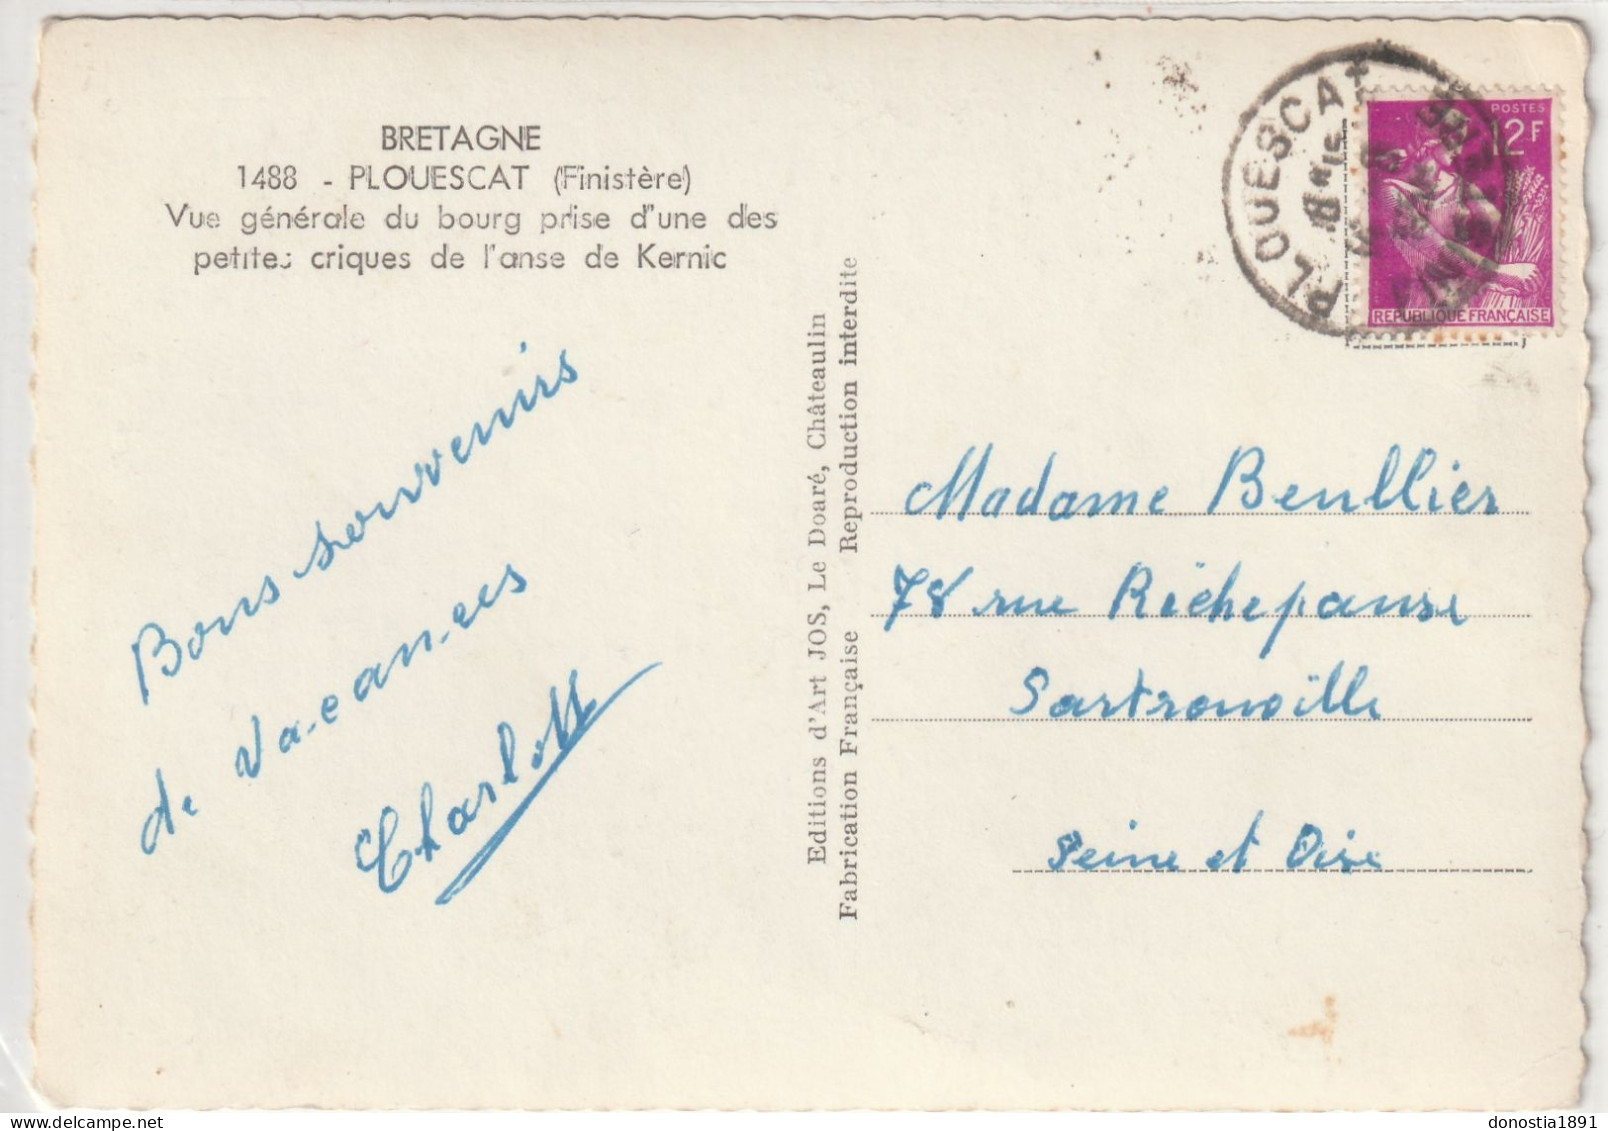 BRETAGNE
1488 - PLOUESCAT (Finistère)
Vue générale du bourg prise d'une des
petites criques de l'anse de Kernic
Bons souvenirs
de vacances
Charlotte
Editions d'Art JOS, Le Doaré, Châteaulin
Fabrication Française Reproduction interdite
PLOUESCAT
POSTES
12F
REPUBLIQUE FRANÇAISE
Madame Beullier
78 rue Richepanse
Sartrouville
Seine et Oise
donostia1891